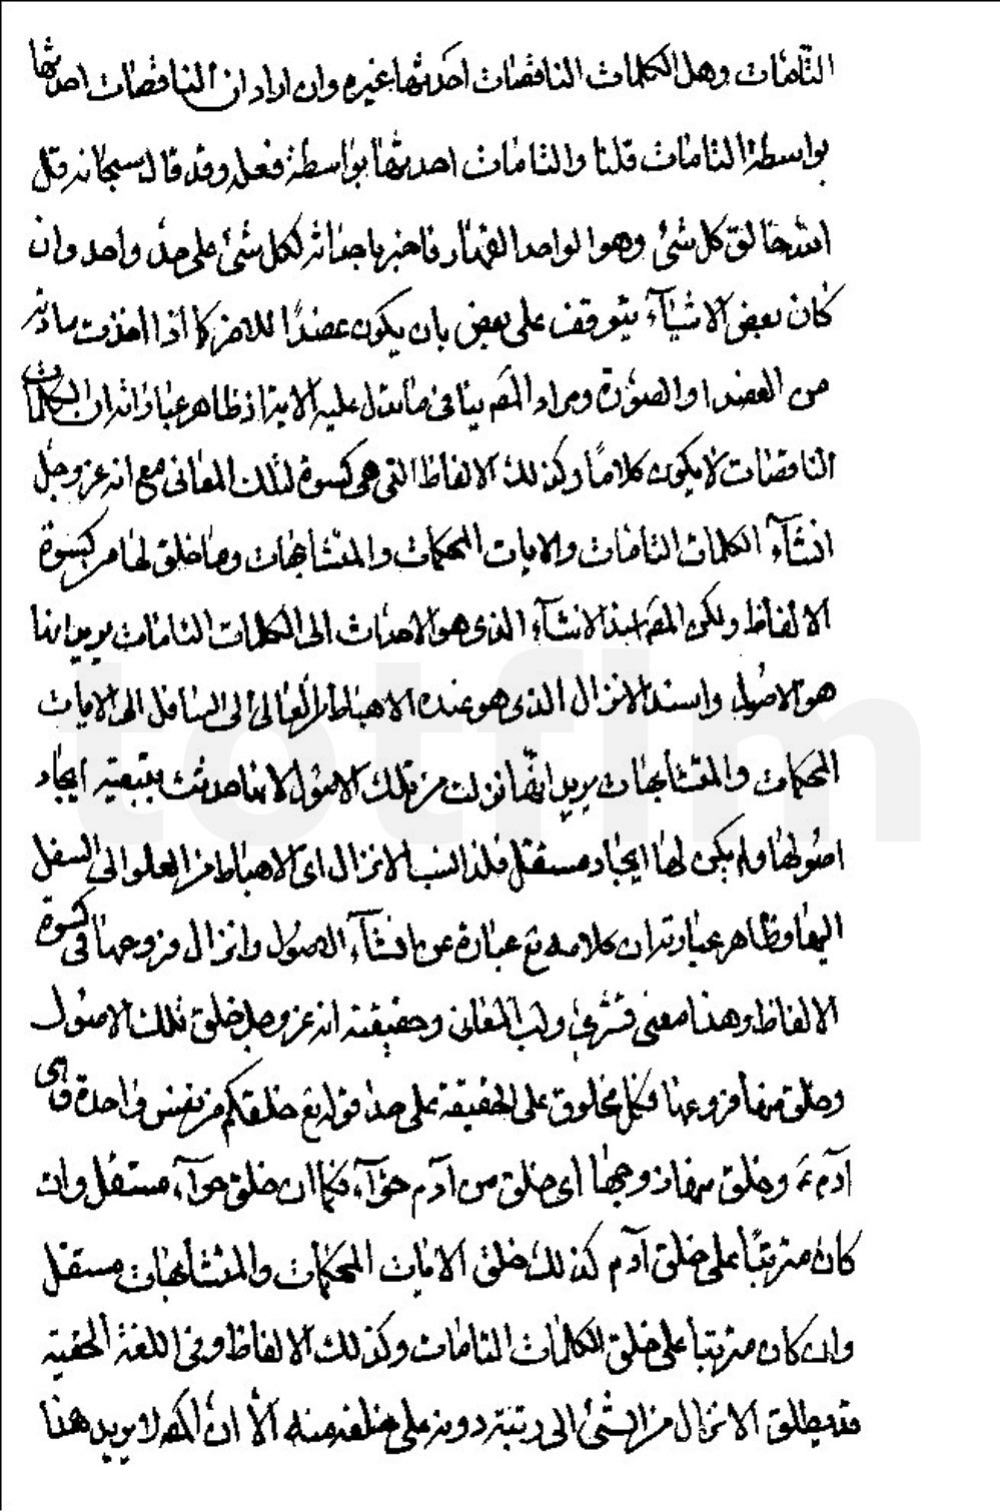 التامات وهل الكلمات الناقصات احدثها غيره وان اراد ان الناقصات احدثها
بواسطة التامات قلنا والتامات احدثها بواسطة فعله وقد قال سبحانه قل
الله خالق كل شئ وهو الواحد القهار فاخبر باحداثه لكل شئ على حد واحد وان
كان بعض الاشيآء يتوقف على بعض بان يكون عضدًا للاخر كما اذا اخذت مادته
من العضد او الصورة ومراد المص ينافى ما تدل عليه الاية اذ ظاهر عباراته ان الكلمات
الناقصات لا يكون كلامًا وكذلك الالفاظ التى هى كسوة لتلك المعانى مع انه عز وجل
انشآء الكلمات التامات والايات المحكمات والمتشابهات وما خلق لها من كسوة
الالفاظ ولكن المص اسند الانشآء الذى هو الاحداث الى الكلمات التامات يريد انها
هو الاصول واسند الانزال الذى هو عنده الاهباط من العالى الى السافل الى الايات
المحكمات والمتشابهات يريد انها نزلت من تلك الاصول لانها حدثت بتبعية ايجاد
اصولها ولم يكن لها ايجاد مستقل فلذا نسب الانزال اى الاهباط من العلو الى السفل
اليها وظاهر عبارته ان كلامه تع عبارة عن انشآء الاصول وانزال فروعها فى كسوة
الالفاظ وهذا معنى قشرى ولب المعانى وحقيقته انه عز وجل خلق تلك الاصول
وخلق منها فروعها فكل مخلوق على الحقيقة على حد قوله تع خلقكم من نفس واحدة اى
آدم ع وخلق منها زوجها اى خلق من آدم حوآء فكما ان خلق حوآء مستقل وان
كان مترتبًا على خلق آدم كذلك خلق الايات المحكمات والمتشابهات مستقل
وان كان مترتبا على خلق الكلمات التامات وكذلك الالفاظ وفى اللغة الحقيقة
قد يطلق الانزال من الشئ الى رتبة دونه على خلقه منه الّا ان المص لا يريد هذا